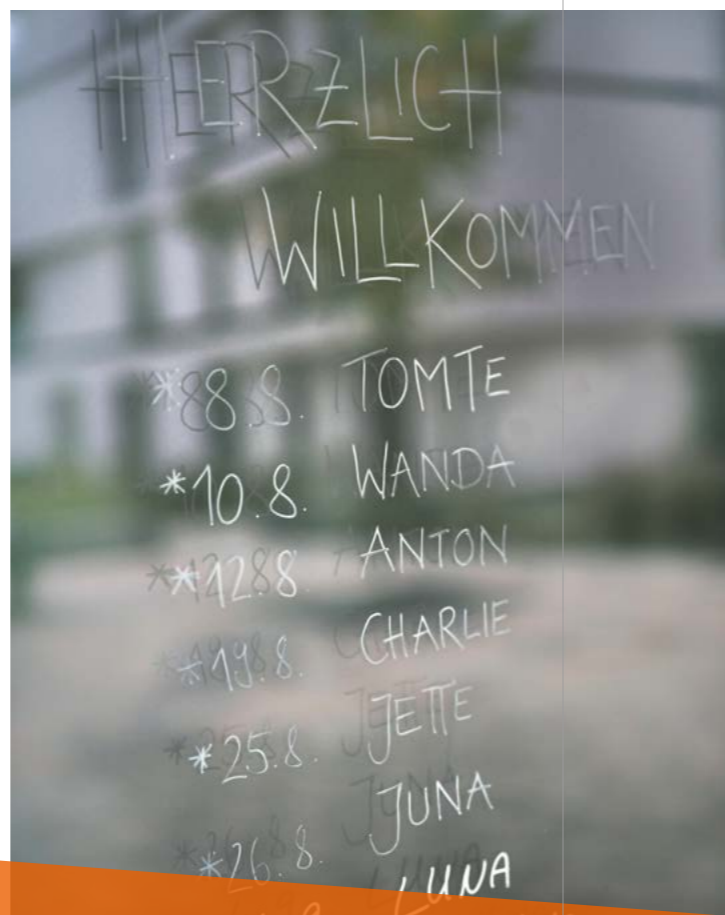 HERZLICH
WILLKOMMEN
*8.8. TOMTE
*10.8. WANDA
*12.8 ANTON
*19.8. CHARLIE
*25.8. JETTE
*26.8. JUNA
LUNA